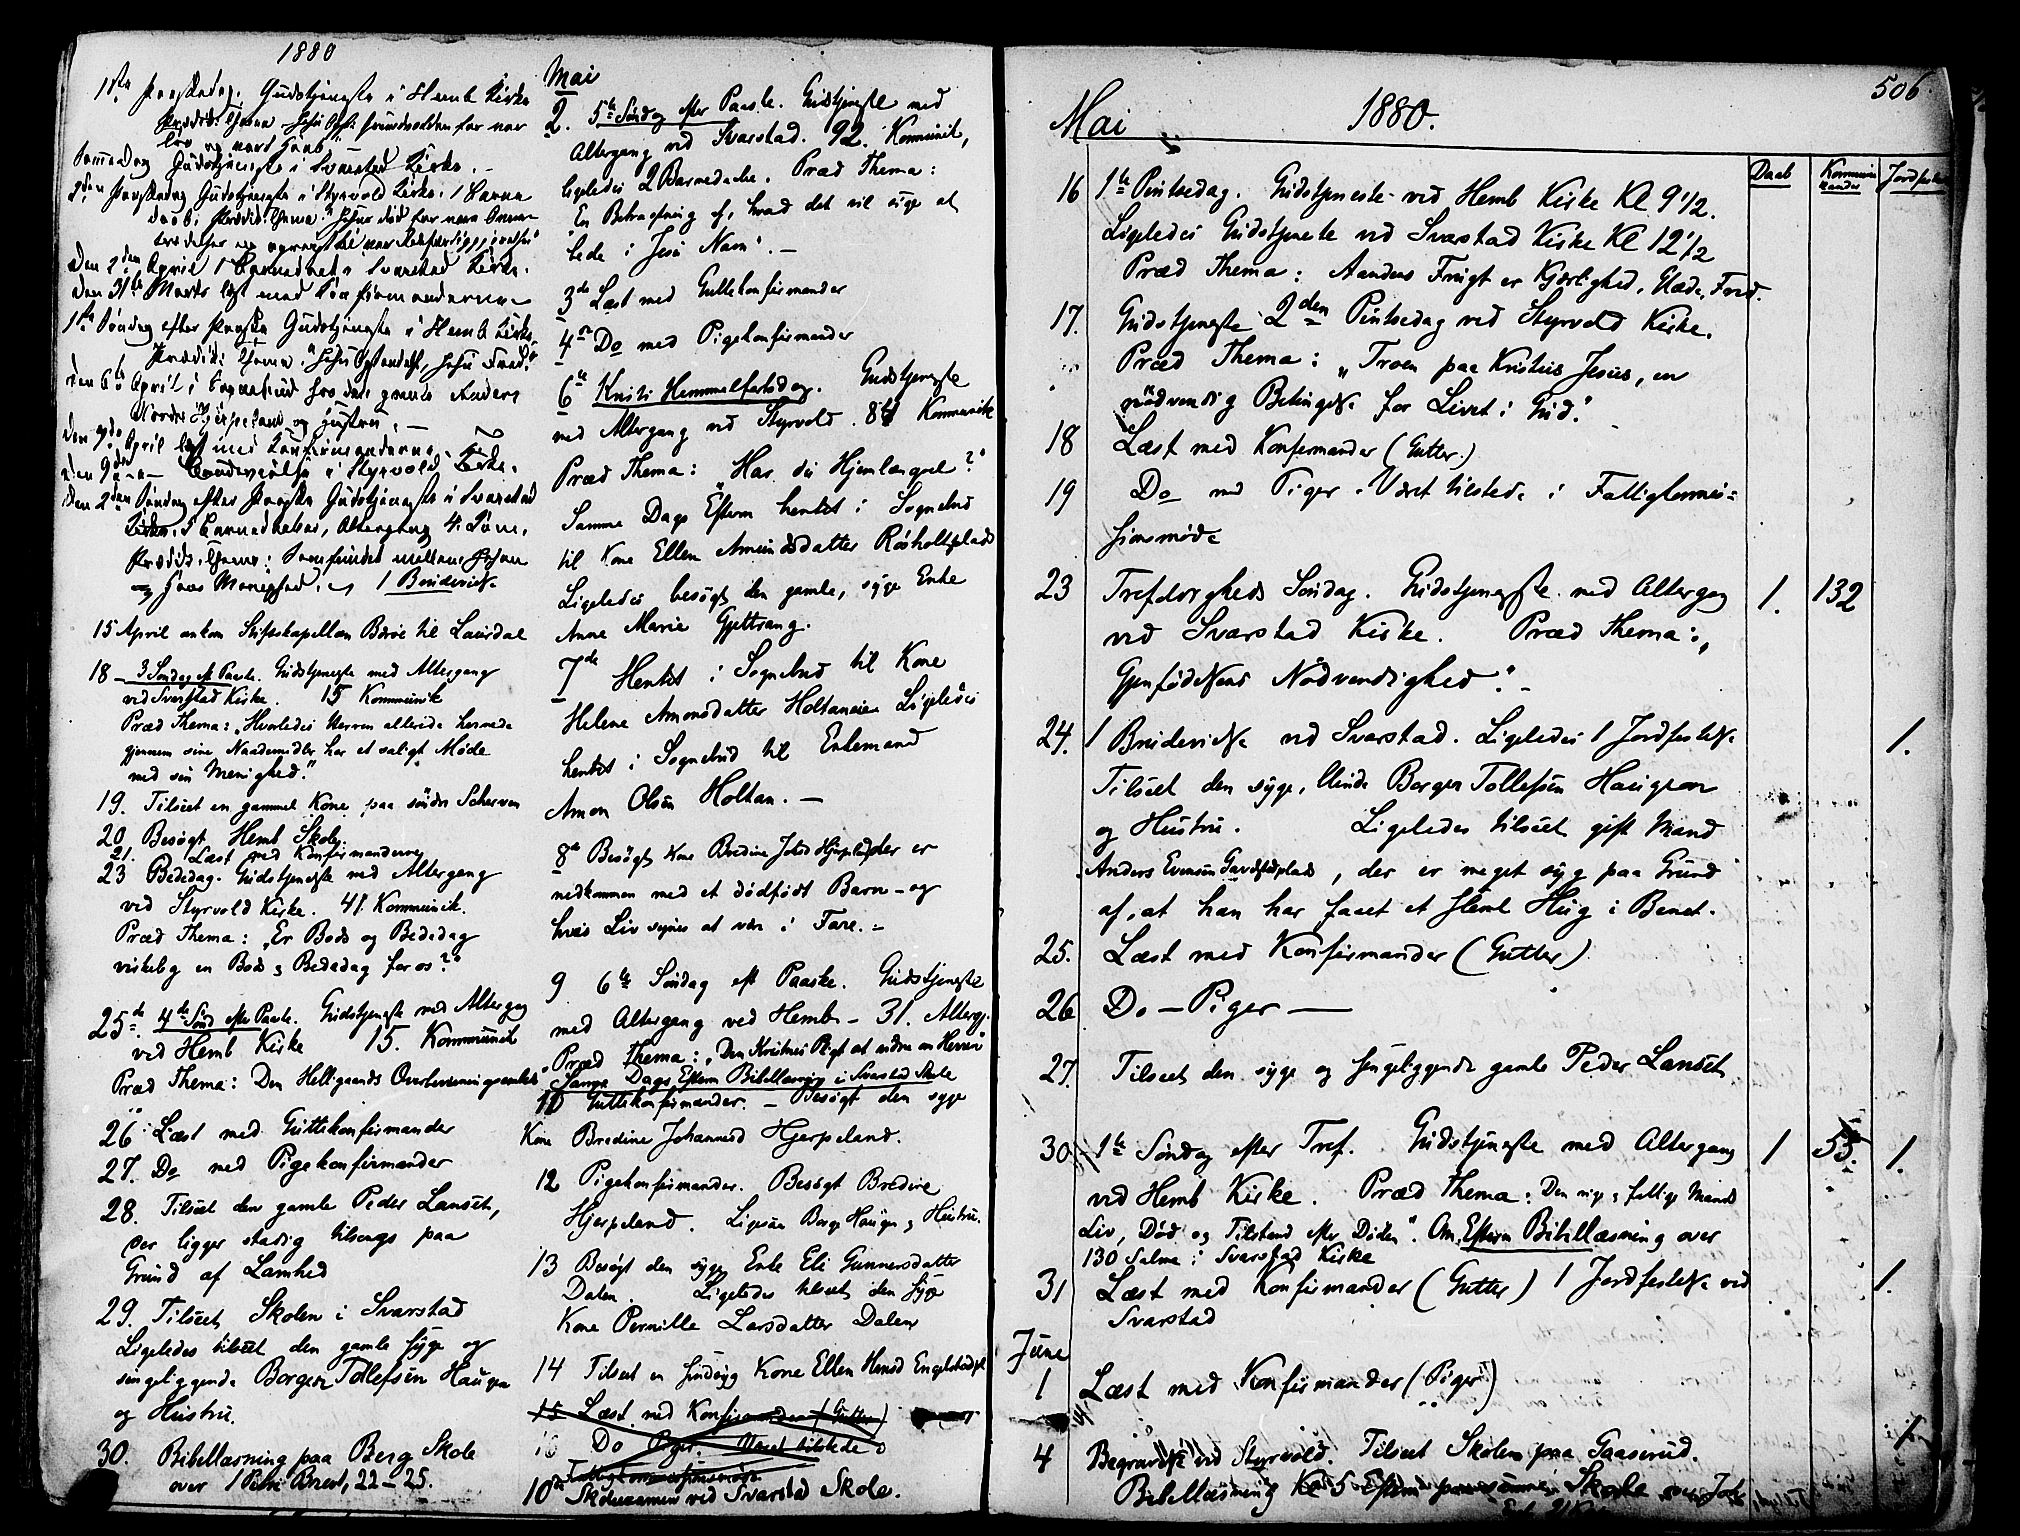 1880
1ste Paaskedag. Gudstjeneste i Hemb Kirke
Prædik. Thema
Samme Dag Gudstjeneste i Svarstad Kirke.
2den Paaskedag Gudstjeneste i Styrvold Kirke. 1 Barne
daab.
Den 2den April 1 Barnedaab i Svarstad Kirke.
Den 31te Marts læst med Konfirmanderne
1ste Søndag efter Paaske Gudstjeneste i Hemb Kirke.
den 6te April i Sognebud hos den gamle Anders
Nordre Hjerpeland og Hustru. —
den 7de April læst med Konfirmanderne.
den 9de — Brudevielse i Styrvold Kirke.
den 2den Søndag efter Paaske Gudstjeneste i Svarstad
Kirke. Barnedaab, Altergang
Prædik. Thema: Samfundet mellem Jesum
og hans Menighed. 1 Brudevielse
15 April ankom Stiftskapellan Børve til Laurdal
18 – 3 Søndag eft Paaske. Gudstjeneste med Altergang
ved Svarstad Kirke. 15 Kommunik
Præd Thema: „Hvorledes Herren allerede hernede
gjennem sine Naademidler har et saligt Møde
med sin Menighed."
19. Tilseet en gammel Kone paa søndre Scherven
20 Besøgt Hemb Skole
21. Læst med Konfirmanderne
23 Bededag. Gudstjeneste med Altergang
ved Styrvold Kirke. 41 Kommunik.
Præd Thema: „Er Bods og Bededag
virkelig en Bods & Bededag for os?"
25de 4de Sønd efter Paaske. Gudstjeneste med Altergang
ved Hemb Kirke 15. Kommunik
Præd Thema: Den Helligaands Overbevisningsembede
26 Læst med Guttekonfirmander
27. Do med Pigekonfirmander
28. Tilseet den gamle Peder Lanset,
der ligger stadig tilsengs paa
Grund af Lamhed
29. Tilseet Skolen i Svarstad
Ligeledes tilseet den gamle syge og
sengeliggende Borger Tollefsen Haugen
og Hustru.
30. Bibellæsning paa Berg Skole
over 1 Petri Brev 1, 22–25.
Mai
2. 5te Søndag efter Paaske. Gudstjeneste med
Altergang ved Svarstad. 92. Kommunik,
ligeledes 2 Barnedaabe. Præd Thema:
En Betragtning af, hvad det vil sige at
bede i Jesu Navn". —
3de Læst med Guttekonfirmander
4de Do med Pigekonfirmander
6te Kristi Himmelfartsdag. Gudstjeneste
med Altergang ved Styrvold. Kommunik
Præd Thema: „Har du Hjemlængsel?"
Samme Dags Efterm hentet i Sognebud
til Kone Ellen Amundsdatter Rösholtplads
Ligeledes besøgt den gamle, syge Enke
Anne Marie Gjettrang.
7de Hentet i Sognebud til Kone
Helene Amonsdatter Holtaneie Ligeledes
hentet i Sognebud til Enkemand
Amon Olsen Holtan. —
8de Besøgt Kone Bredine Johs Hjerpeland der er
nedkommen med et dødfødt Barn – og
hvis Liv synes at være i Fare. –
9 6te Søndag eft Paaske. Gudstjeneste
med Altergang ved Hemb – 31. Alterg.
Præd Thema: „Den Kristnes Pligt at vidne om Herren
Samme Dags Efterm Bibellæsning i Svarstad Skole
10 Guttekonfirmander. – Besøgt den syge
Kone Bredine Johannesd Hjerpeland.
12 Pigekonfirmander. Besøgt Bredine
Hjerpeland. Ligesaa Borger Haugen & Hustru.
13 Besøgt den syge Enke Eli Gunnersdatter
Dalen. Ligeledes tilseet den syge
Kone Pernille Larsdatter Dalen
14 Tilseet en sindsyg Kone Ellen Hansd Engelstadpl
15 Læst med Konfirmander (Gutter)
16 Do Piger. Været tilstede i
Fattigkommissionsmøde
10de Skoleexamen ved Svarstad Skole.
506
Mai 1880.
Daab Kommuni
kanter Jordfæstel
16 1te Pintsedag. Gudstjeneste ved Hemb Kirke Kl 9 1/2.
Ligeledes Gudstjeneste ved Svarstad Kirke Kl 12 1/2
Præd Thema: Aandens Frugt er Kjærlighed, Glæde, Fred.
17. Gudstjeneste 2den Pintsedag ved Styrvold Kirke.
Præd Thema: „Troen paa Kristus Jesus, en
nødvendig Betingelse for Livet i Gud."
18 Læst med Konfirmander (Gutter.)
19 Do med Piger. Været tilstede i Fattigkommis=
sionsmøde
23 Trefoldigheds Søndag. Gudstjeneste med Altergang 1. 132
ved Svarstad Kirke. Præd Thema: „
Gjenfødelsens Nødvendighed". –
24. 1 Brudevielse ved Svarstad. Ligeledes 1 Jordfæstelse 1.
Tilseet den syge, blinde Borger Tollefsen Haugen
og Hustru. Ligeledes tilseet gift Mand
Anders Evensen , der er meget syg paa Grund
af, at han har faaet et slemt Hug i Benet.
25. Læst med Konfirmander (Gutter)
26 Do – Piger —
27. Tilseet den syge og sengeliggende gamle Peder Lanset
30 1te Søndag efter Tref. Gudstjeneste med Altergang 1 53. 1.
ved Hemb Kirke. Præd Thema: Den rige & fattige Mands
Liv, Død og Tilstand efter Døden". Om Efterm Bibellæsning over
130 Salme i Svarstad Kirke
31 Læst med Konfirmander (Gutter) 1 Jordfæstelse ved 1.
Svarstad
June
1 Læst med Konfirmander (Piger)
4 Begravelse ved Styrvold. Tilseet Skolen paa Gaaserud. 1
Bibellæsning Kl 5 Efterm paa samme Skole over Joh